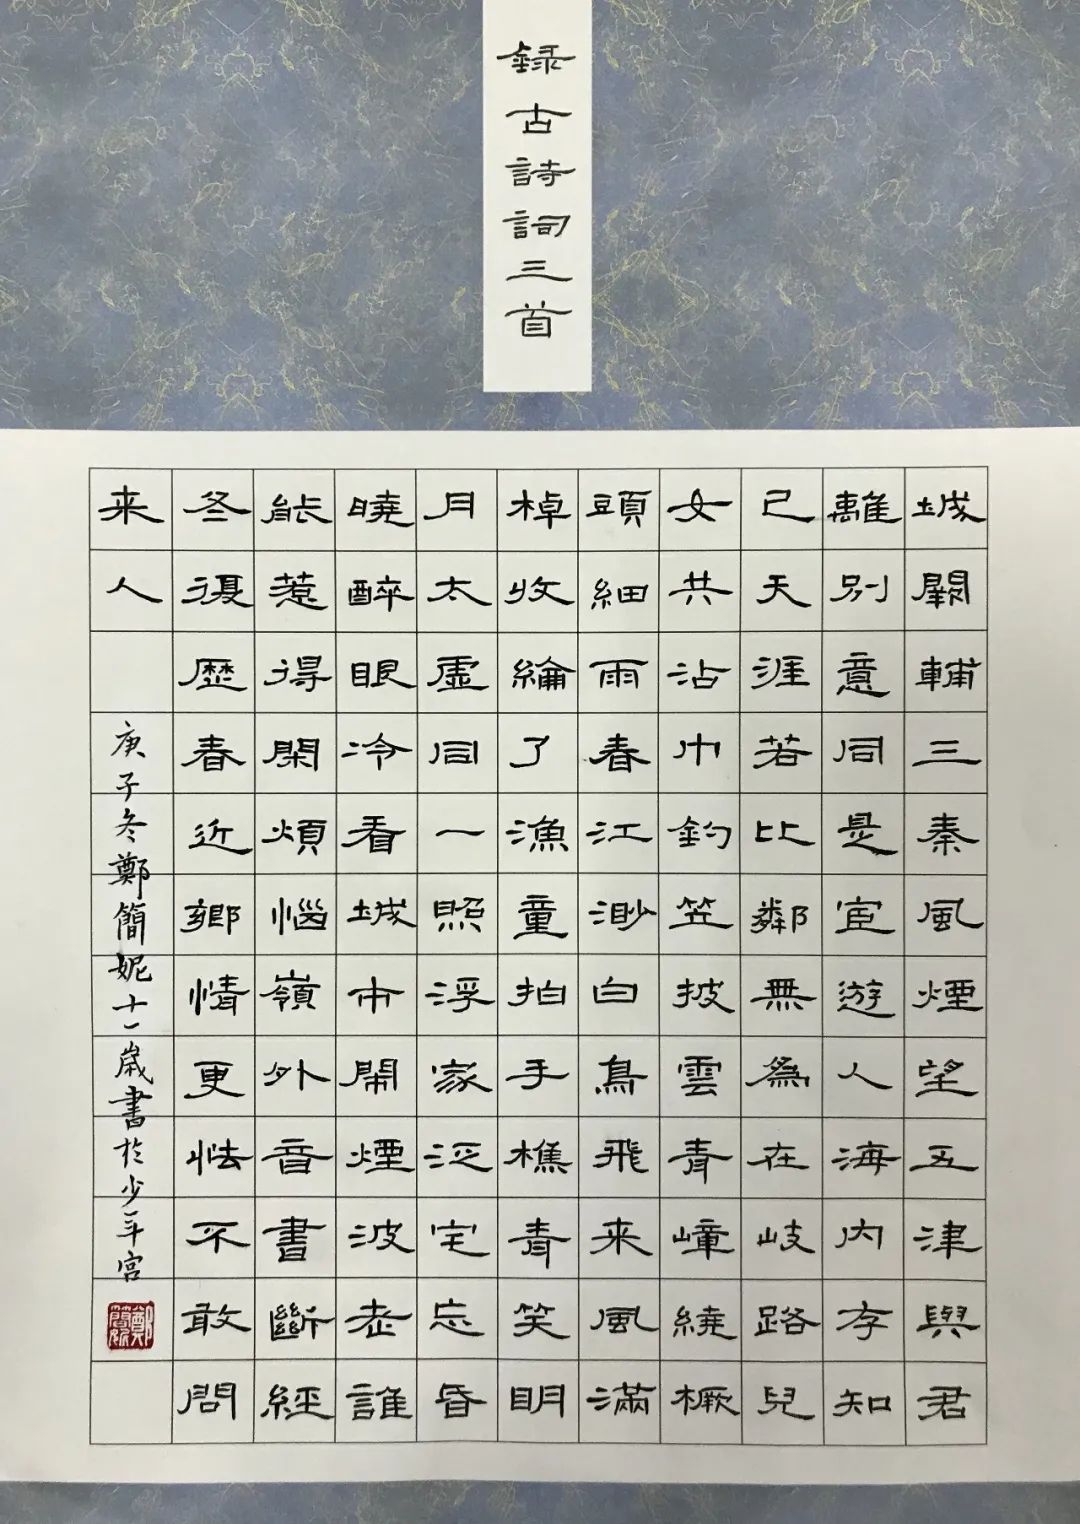 録古詩詞三首
城闕輔三秦風煙望五津與君
離別意同是宦遊人海内存知
己天涯若比鄰無為在岐路兒
女共沾巾釣笠披雲青嶂繞橛
頭細雨春江渺白鳥飛来風滿
棹收綸了漁童拍手樵青笑明
月太虛同一照浮家泛宅忘昏
曉醉眼冷看城市鬧煙波老誰
能惹得閑煩惱嶺外音書斷經
冬復歷春近鄉情更怯不敢問
来人
庚子冬鄭簡妮十一歲書於少年宮
鄭簡妮